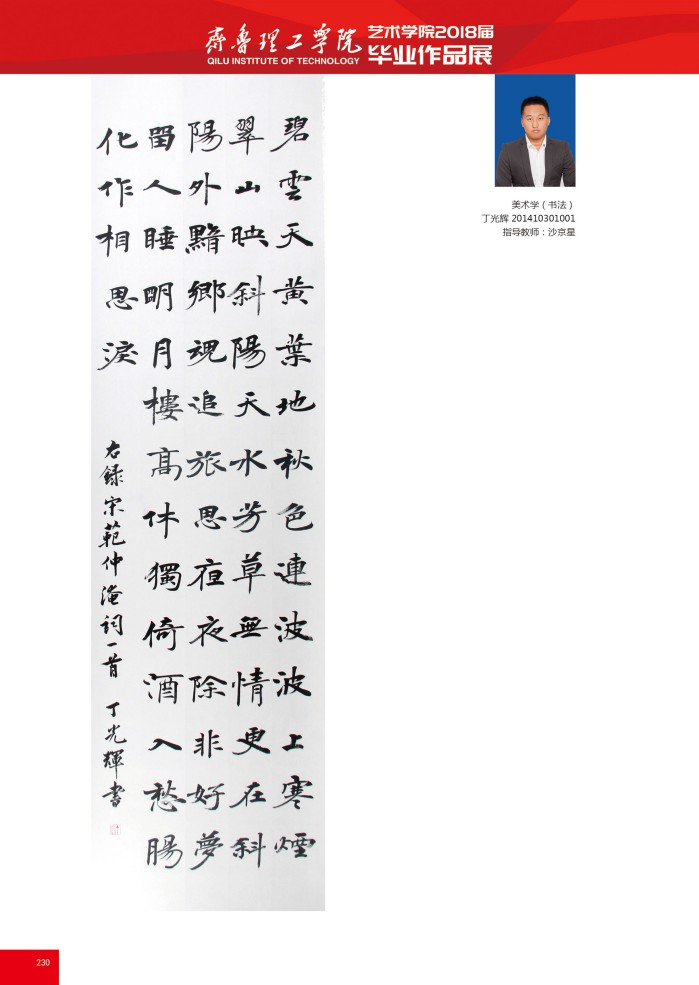 齊魯理工學院
QILU INSTITUTE OF TECHNOLOGY
艺术学院2018届
毕业作品展
碧雲天黄葉地秋色連波波上寒煙
翠山映斜陽天水芳草無情更在斜
陽外黯鄉魂追旅思亱夜除非好夢
留人睡明月樓高休獨倚酒入愁腸
化作相思淚
右録宋範仲淹詞一首 丁光輝書
美术学（书法）
丁光辉 201410301001
指导教师：沙京星
230